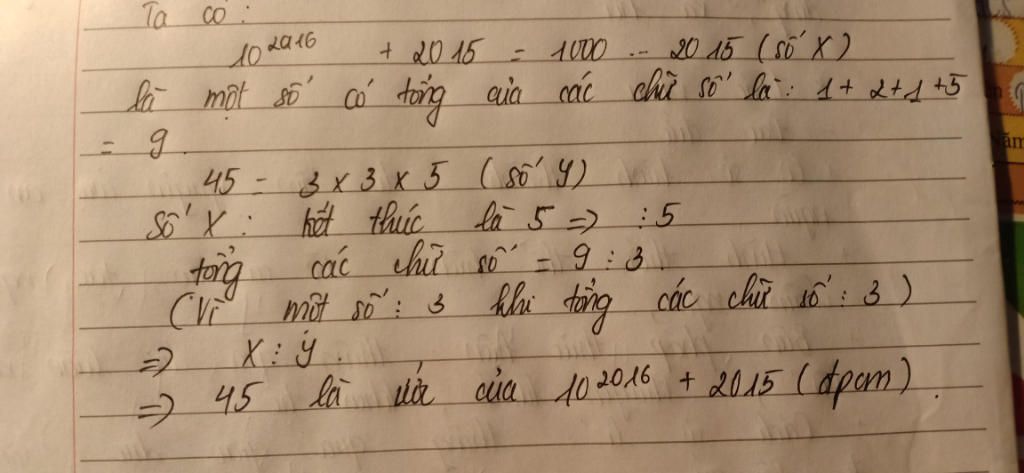 Ta có:
10^2016 + 2015 = 1000 ... 2015 (số X)
là một số có tổng của các chữ số là: 1 + 2 + 1 + 5
= 9.
45 = 3 x 3 x 5 (số Y)
số X: kết thúc là 5 => ⋮ 5
tổng các chữ số = 9 ⋮ 3.
(Vì một số ⋮ 3 khi tổng các chữ số ⋮ 3)
=> X ⋮ Y.
=> 45 là ước của 10^2016 + 2015 (đpcm).